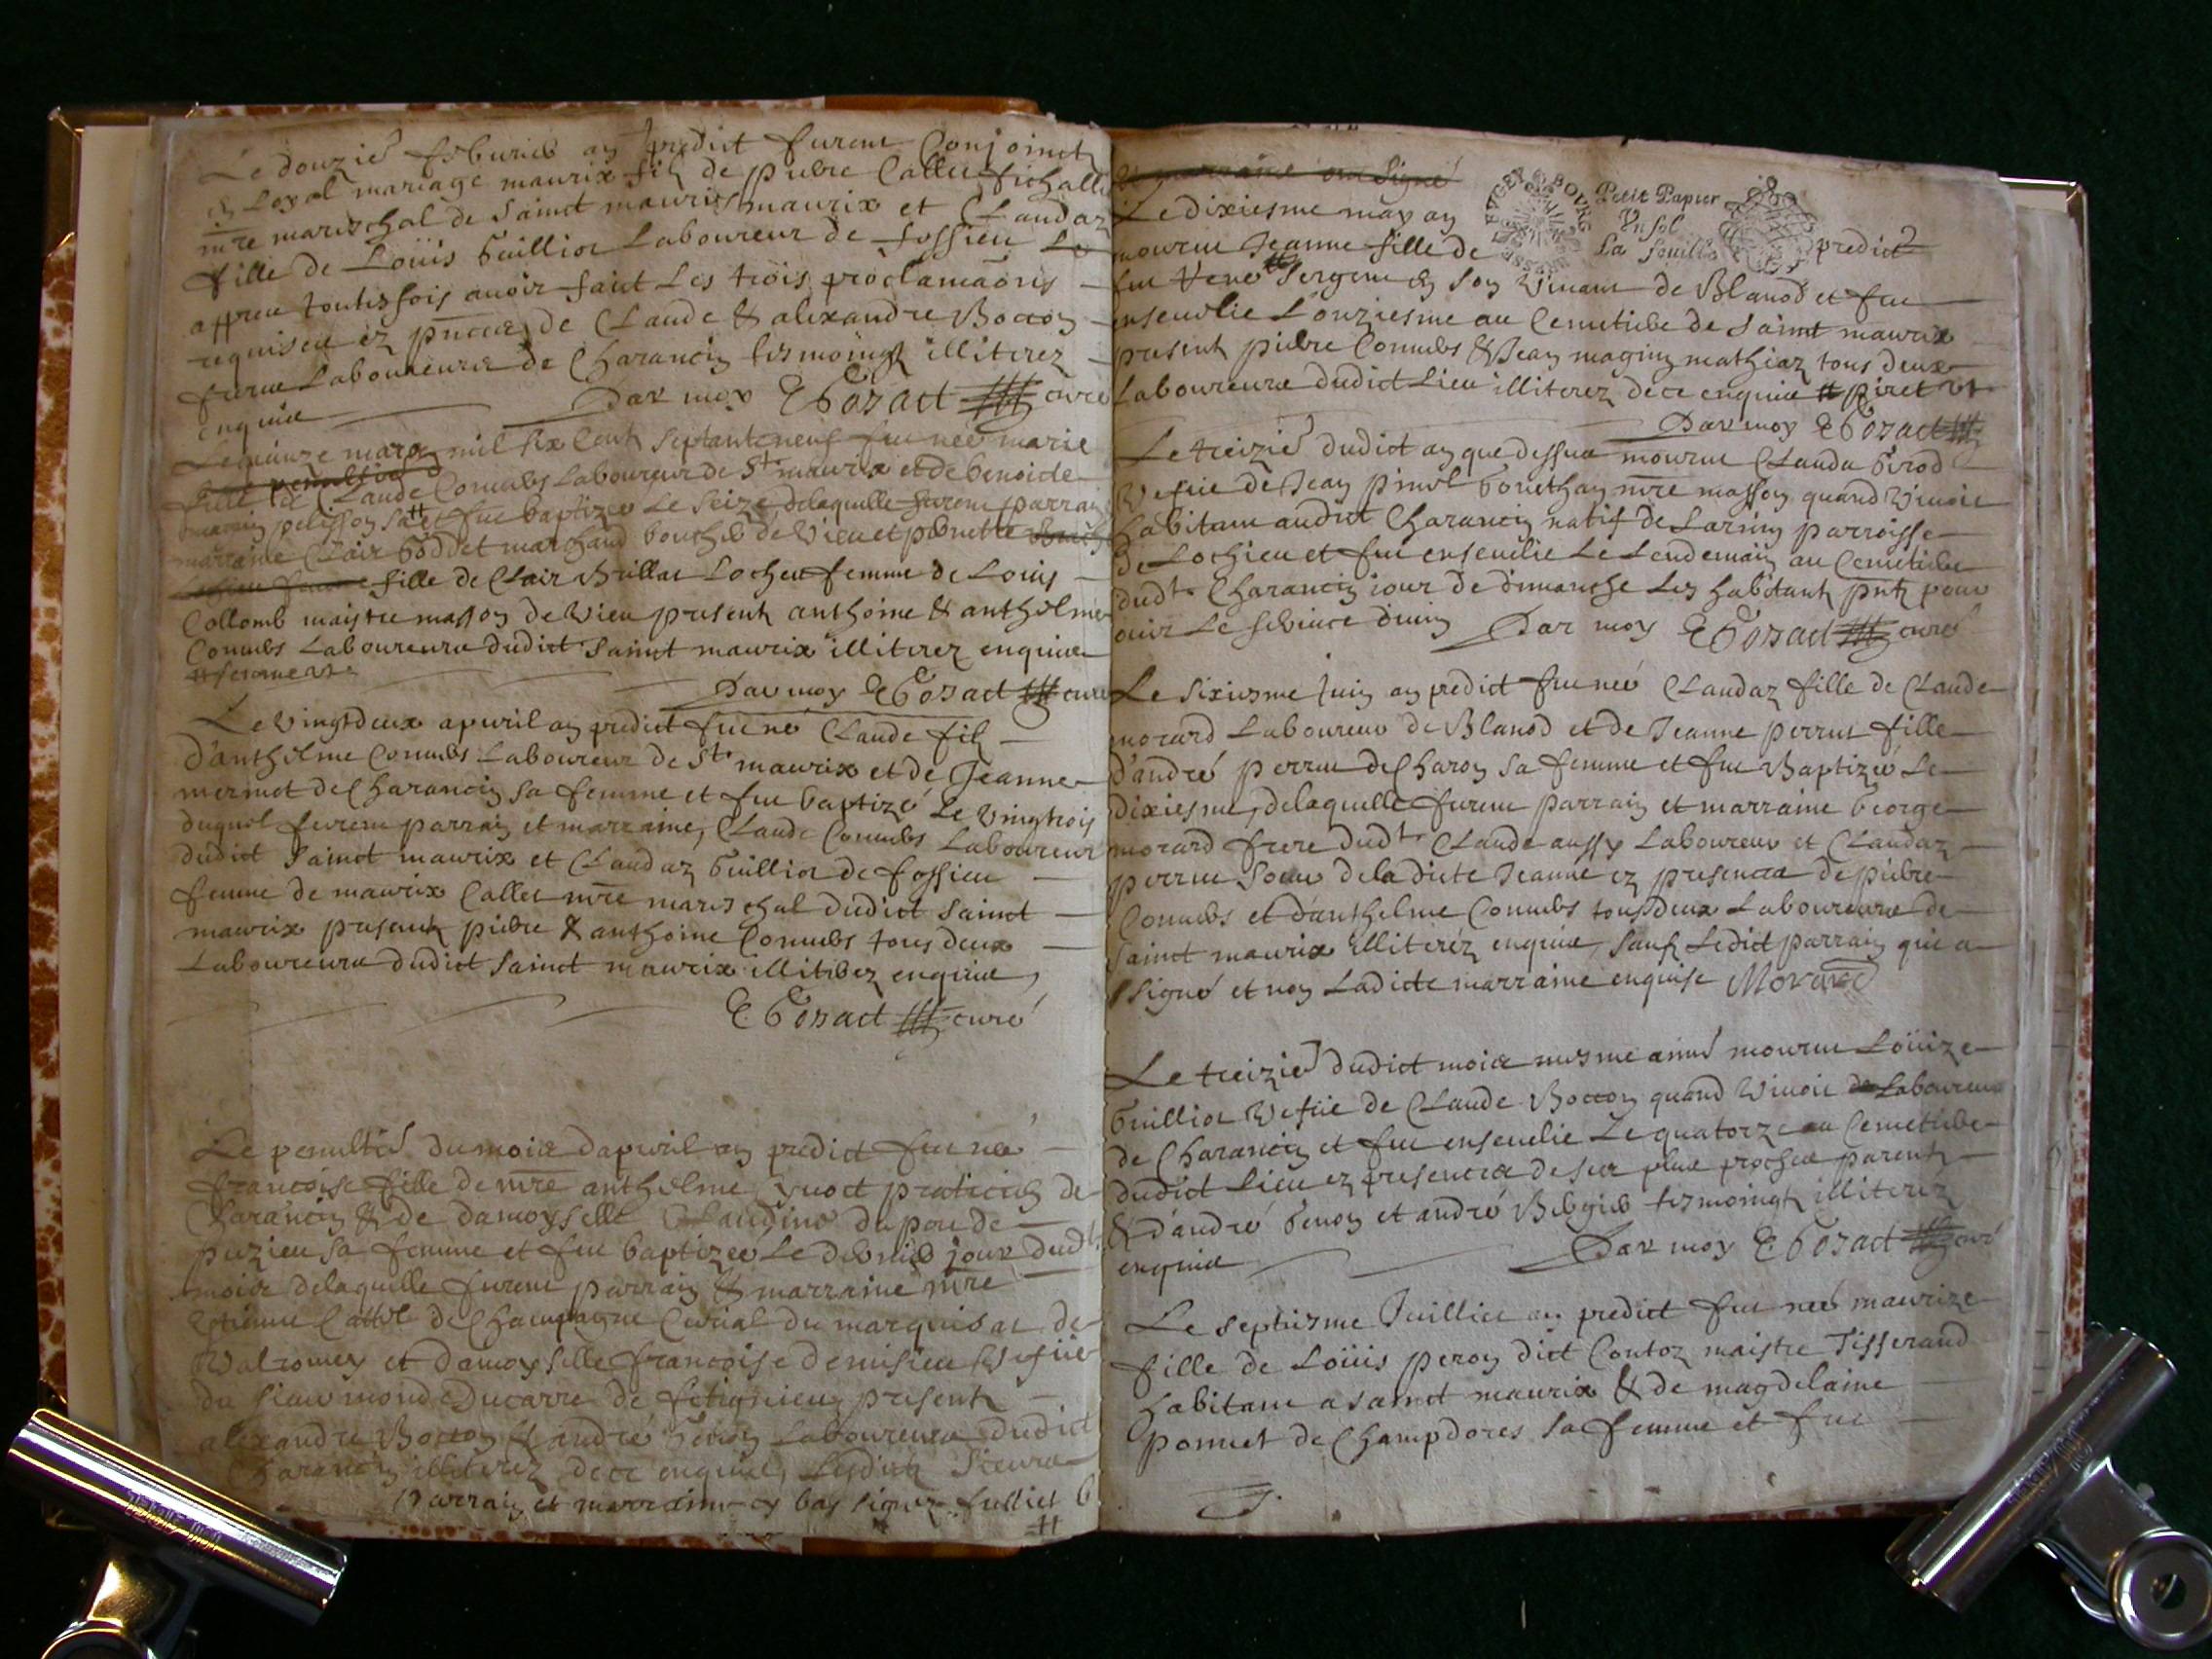 Le douzie febvrier an predict furent Conjoinct
En Loyal mariage maurix filz de piere Callet
mre mareschal de Sainct mauris maurix et Claudaz
fille de Loüis Guilliot Laboureur de fossieu Le
appres toutesfois avoir faict Les trois proclamaõns
requises ez pnces de Claude & alexandre Bocton
furne Laboureurs de Charancin tesmoingz illiterez
enquis
Par moy EGonact curé
Lequinze mars mil six Cent septanteneuf fut née marie
fille de Claude Connubs Laboureur de St maurix et de benoicte
marin pelisson sa et fut baptizée Le seize delaquelle furent parrain
marraine Clair Goddet marchand boucher de Vieu et pernette
fille de Clair Brillat Locheu femme de Louis
Collomb maistre masson de Vieu present anthoine & anthelme
Connubs Laboureurs dudict Sainct maurix illiterez enquis
Par moy EGonact curé
Le vingtdeux apvril an predict fut né Claude filz
d'anthelme Connubs Laboureur de St maurix et de Jeanne
mermet de Charancin sa femme et fut baptizé Le vingtrois
duquel furent parrain et marraine, Claude Connubs Laboureur
dudict Sainct maurix et Claudaz Guilliot de fossieu
femme de maurix Callet mre mareschal dudict Sainct
maurix presentz piere & anthoine Connubs tous deux
Laboureurs dudict Sainct maurix illiterez enquis,
EGonact curé
Le penultie du mois dapvril an predict fut née
francoise fille de mre anthelme Ynoct praticien de
Charancin & de damoyselle Claudine dupou de
puzieu sa femme et fut baptizée Le dernier jour dudt
mois delaquelle furent parrain & marraine mre
Estienne Cattel de Champagne Curial du marquisat de
Valromey et damoyselle francoise demisieu Vefve
du sieur monde Ducarre de fitignieu presentz
alexandre Bocton & andré Genon Laboureurs dudict
Charancin illiterez de ce enquis, Lesditz Sieurs
Parrain et marraine cy bas signez
marraine ont Signé
Petit Papier
Un sol
La feuille
Le dixiesme may an predict
mourut Jeanne fille de
fut René Sergent En son Vivant de Blanod et fut
ensevelie L'onziesme au Cemetiere de Sainct maurix
presentz pierre Connubs & Jean magnin mathiaz tous deux
Laboureurs dudict Lieu illiterez de ce enquis
Par moy EGonact
Le treizie dudict an que dessus mourut Clauda Girod
Vefve de Jean pinel Gonethan mre masson quand Vivoit
habitant audict Charancin natif de Larnin parroisse
de Lochieu et fut ensevelie Le Lendemain au Cemetiere
dudt Charancin jour de dimanche Les habitantz pntz pour
ouir Le service divin Par moy EGonact curé
Le sixiesme Juin an predict fut née Claudaz fille de Claude
morard Laboureur de Blanod et de Jeanne perrut fille
d'andré perrut de Charon sa femme et fut Baptizée Le
dixiesme, delaquelle furent parrain et marraine George
morard frere dudt Claude aussy Laboureur et Claudaz
perrut Soeur de ladicte Jeanne ez presences de piere
Connubs et d'anthelme Connubs tous deux Laboureurs de
Sainct maurix illiteréz enquis, sauf Ledict parrain qui a
Signé et non Ladicte marraine enquise Morard
Le treizie dudict mois mesme année mourut Loüize
Guilliot Vefve de Claude Bocton quand Vivoit Laboureur
de Charancin et fut ensevelie Le quatorze au Cemetiere
dudict Lieu ez presences de ses plus proches parentz
& d'andré Genon et andré Bergier tesmoingtz illiterez
enquis Par moy EGonact curé
Le septiesme Juilliet an predict fut née maurize
fille de Loüis peron dict Contoz maistre Tisserand
habitant a Sainct maurix & de magdelaine
ponnet de Champdores sa femme et fut